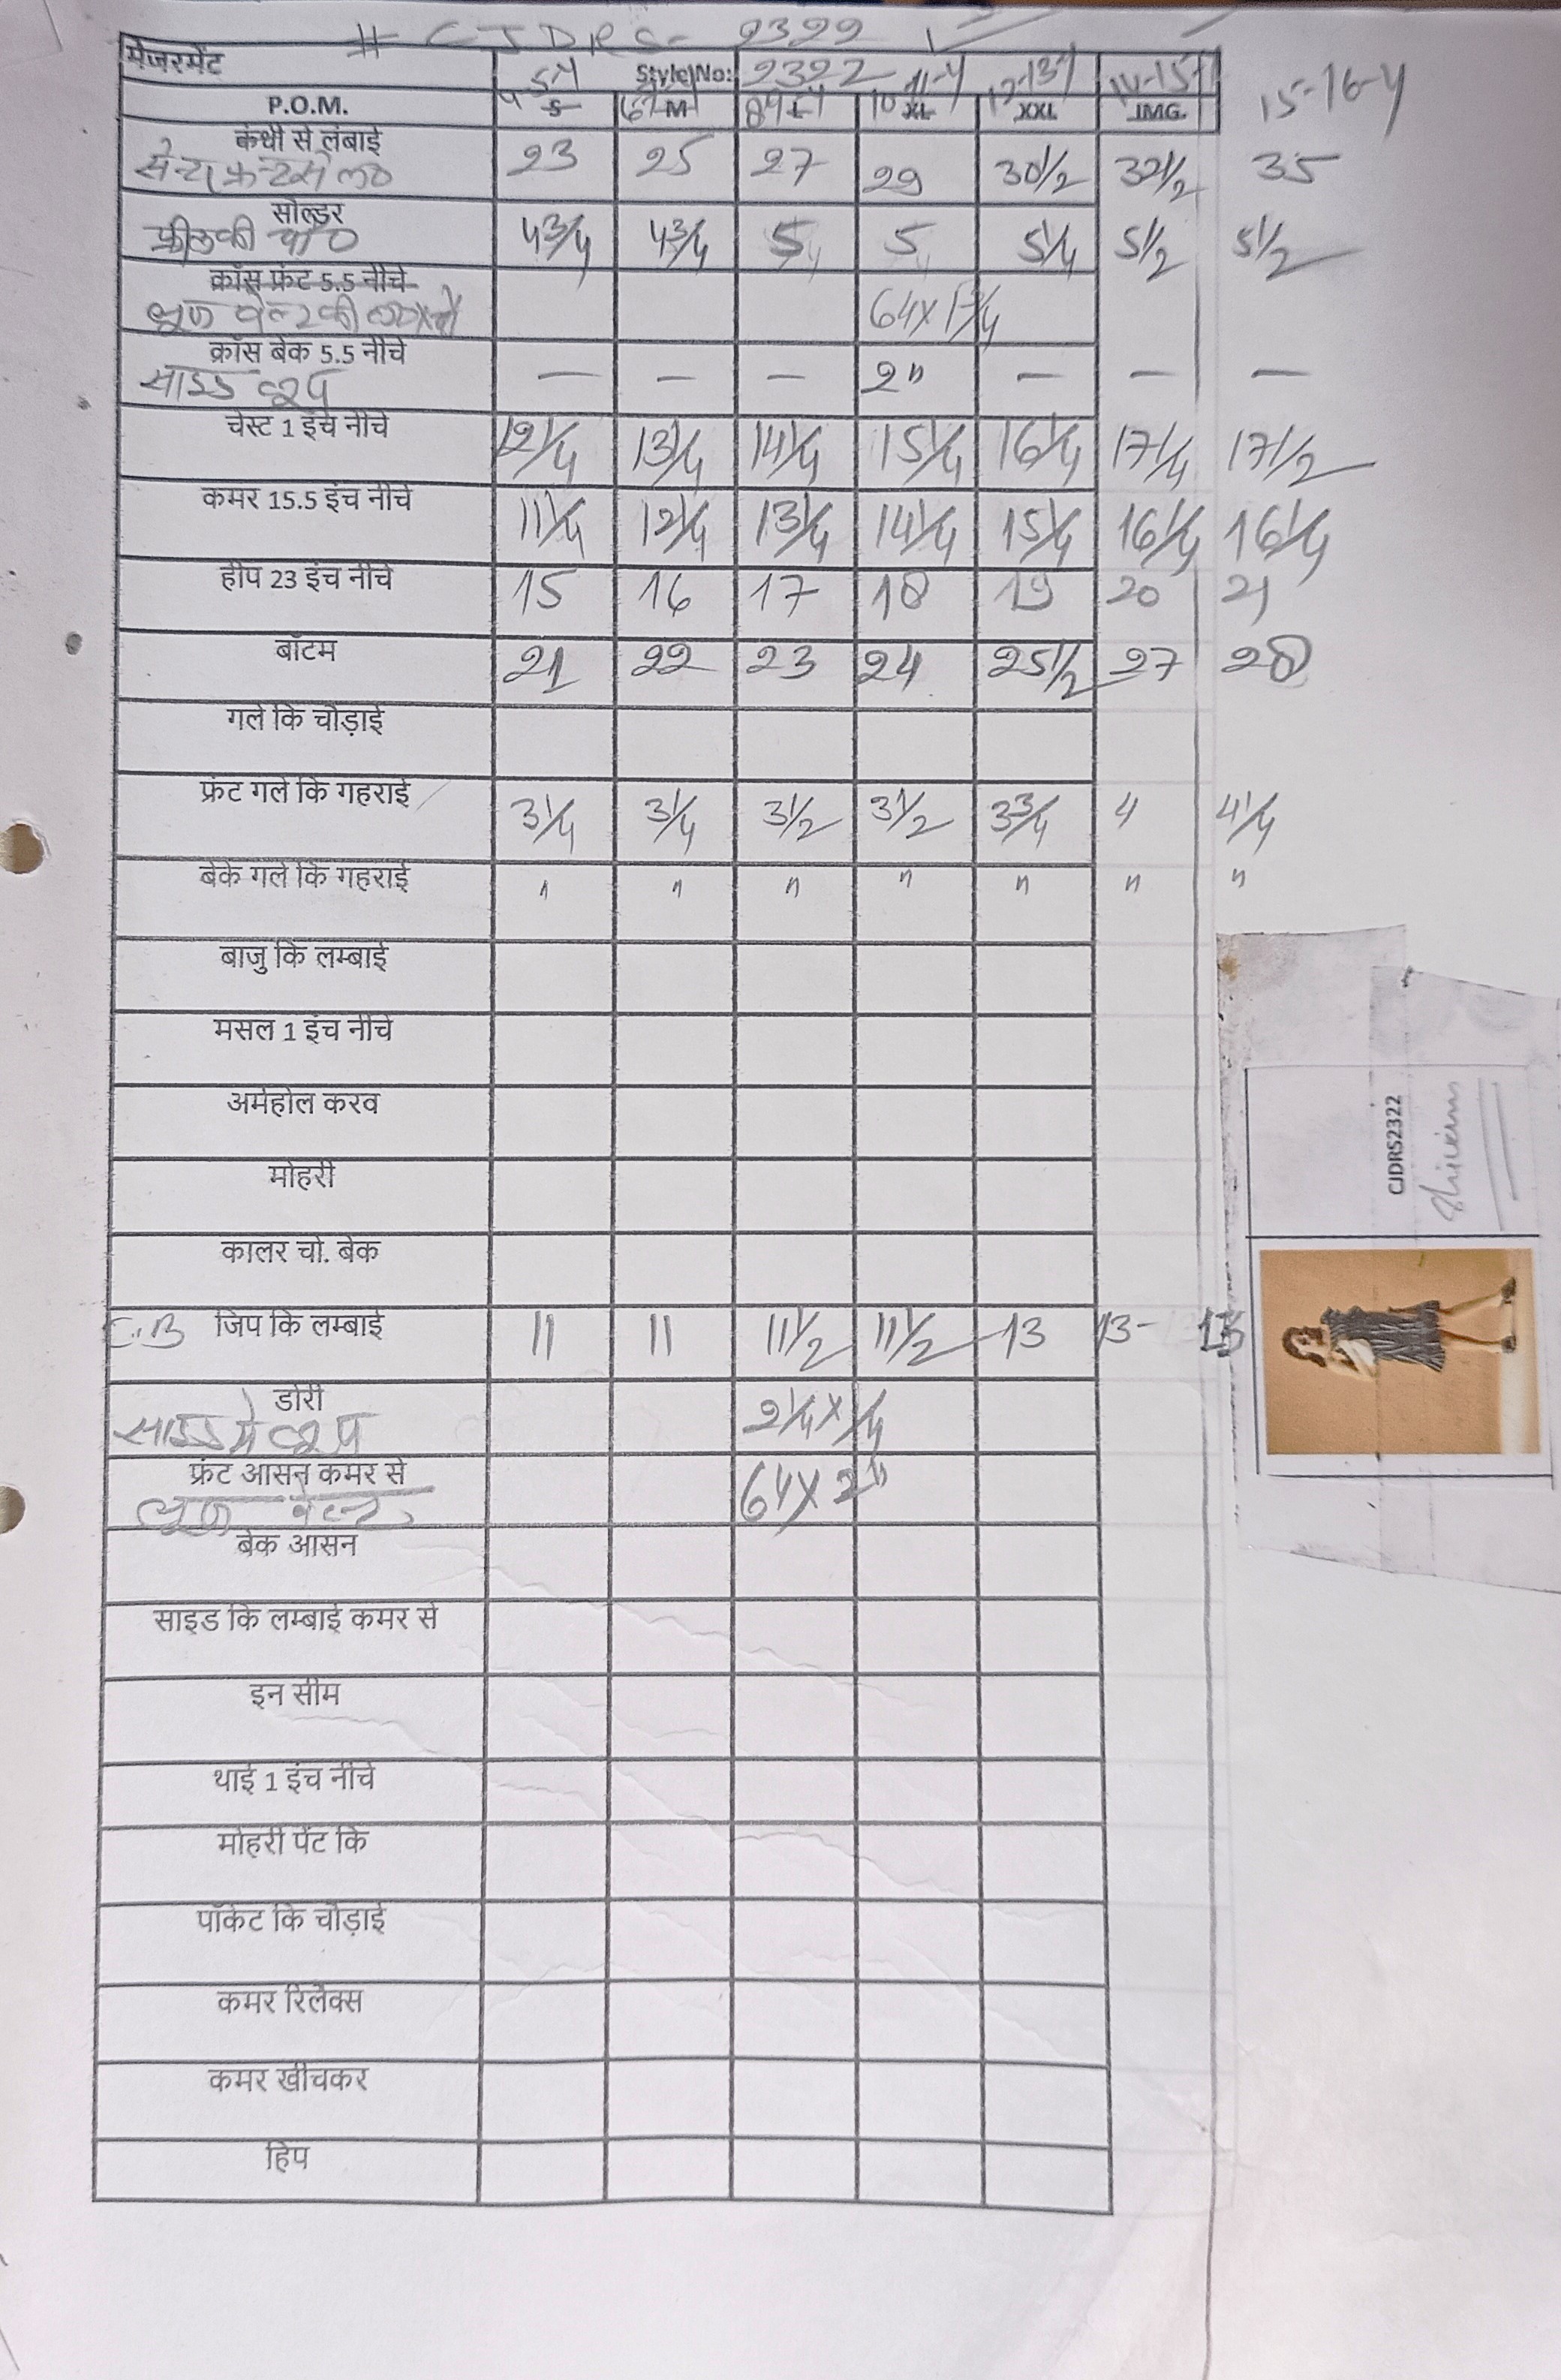 # CJDRS- 2322
मेजरमेंट Style No: 2322
4-5-Y 6-7-Y 8-9-Y 10-11-Y 12-13-Y 14-15-Y 15-16-Y
P.O.M. S M L XL XXL IMG.
कंधी से लंबाई
सेन्टर फ्रन्ट से ल० 23 25 27 29 30 1/2 32 1/2 35
सोल्डर
फ्रीलकी चौ० 4 3/4 4 3/4 5 5 5 1/4 5 1/2 5 1/2
क्रॉस फ्रंट 5.5 नीचे
64 x 1 3/4
क्रॉस बेक 5.5 नीचे
साइड लूप — — — 2" — — —
चेस्ट 1 इंच नीचे 12 1/4 13 1/4 14 1/4 15 1/4 16 1/4 17 1/4 17 1/2
कमर 15.5 इंच नीचे 11 1/4 12 1/4 13 1/4 14 1/4 15 1/4 16 1/4 16 1/4
हीप 23 इंच नीचे 15 16 17 18 19 20 21
बॉटम 21 22 23 24 25 1/2 27 28
गले कि चौड़ाई
फ्रंट गले कि गहराई 3 1/4 3 1/4 3 1/2 3 1/2 3 3/4 4 4 1/4
बेके गले कि गहराई " " " " " " "
बाजु कि लम्बाई
मसल 1 इंच नीचे
अर्महोल करव
मोहरी
कालर चो. बेक
C.B जिप कि लम्बाई 11 11 11 1/2 11 1/2 13 13- 13
डोरी
साइड मे लूप 2 1/4 x 1/4
फ्रंट आसन कमर से
64 x 2"
बेक आसन
साइड कि लम्बाई कमर से
इन सीम
थाई 1 इंच नीचे
मोहरी पेंट कि
पॉकेट कि चौड़ाई
कमर रिलेक्स
कमर खीचकर
हिप
CJDRS2322